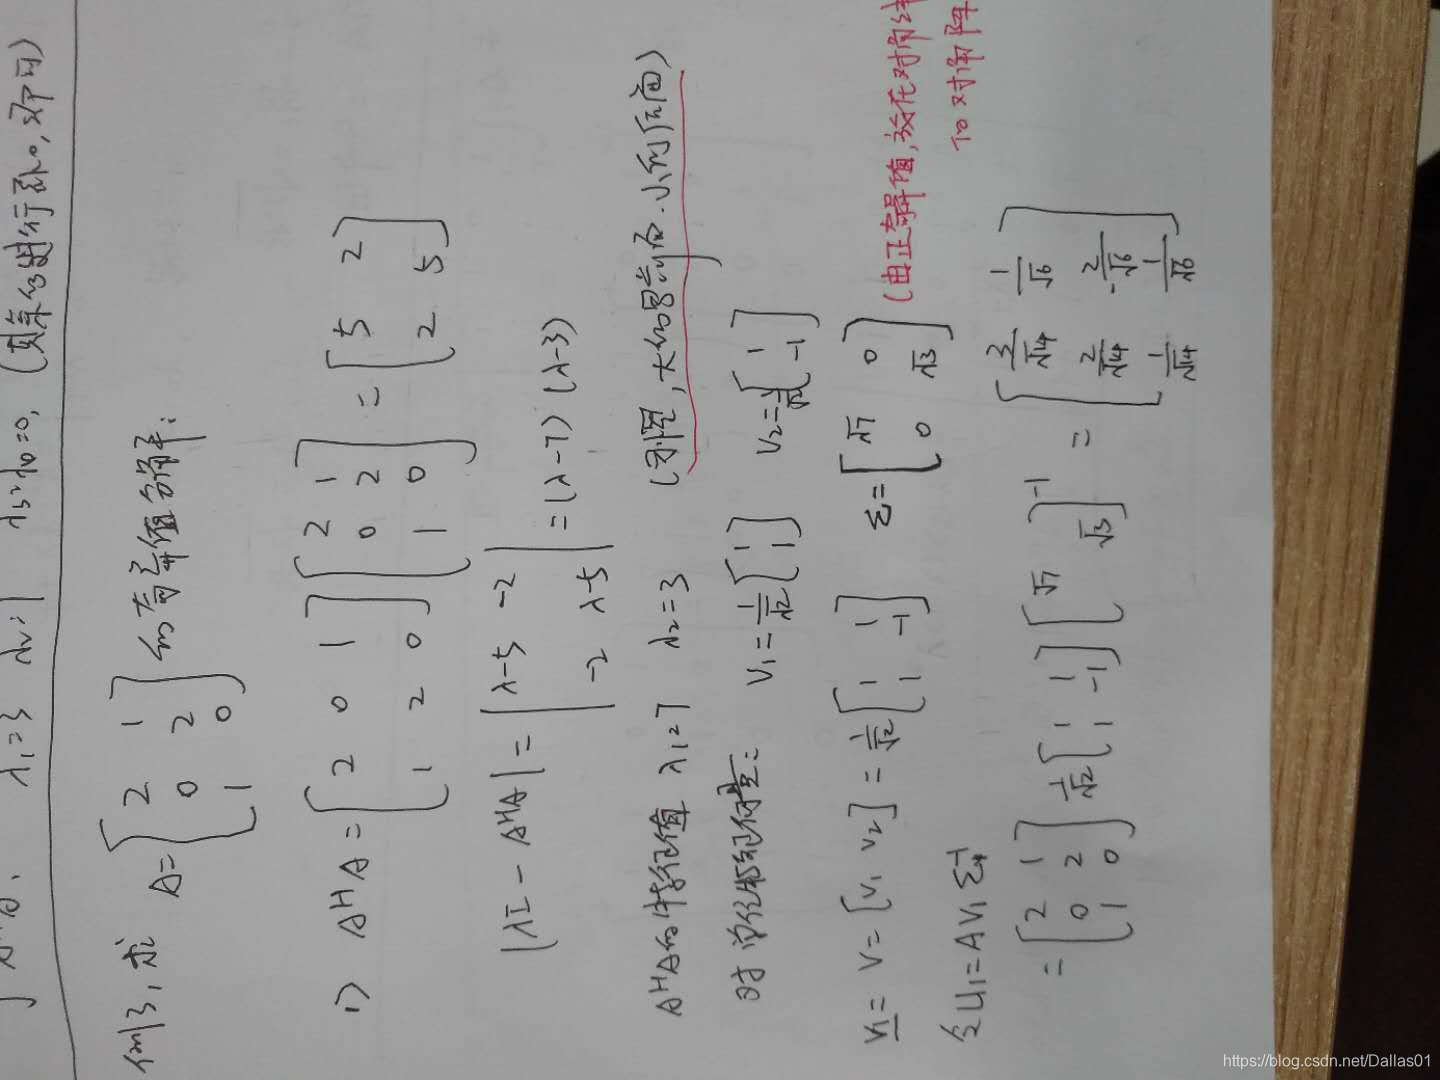 λ₁=3 λ₂=1 λ₃=λ₀=0, (其余的进行补0,即可)
例3, 求 A=[2 1; 0 2; 1 0] 的奇异值分解:
1) AᴴA=[2 0 1; 1 2 0][2 1; 0 2; 1 0]=[5 2; 2 5]
|λI-AᴴA|=|λ-5 -2; -2 λ-5|=(λ-7)(λ-3)
AᴴA的特征值 λ₁=7 λ₂=3 (大的写前面.小的后面)
对 v₁=1/√2[1; 1] v₂=1/√2[1; -1]
V₁=V=[v₁ v₂]=1/√2[1 1; 1 -1] Σ=[√7 0; 0 √3] (由正奇异值,放在对角线
to对角阵
令U₁=AV₁Σ⁻¹
=[2 1; 0 2; 1 0]1/√2[1 1; 1 -1][√7 √3]⁻¹=[3/√14 1/√6; 2/√14 -2/√6; 1/√14 1/√6]
https://blog.csdn.net/Dallas01